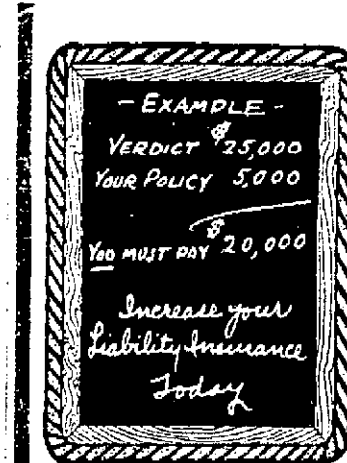 - EXAMPLE -
VERDICT $ 25,000
YOUR POLICY 5,000
YOU MUST PAY $ 20,000
Increase your
Liability Insurance
Today